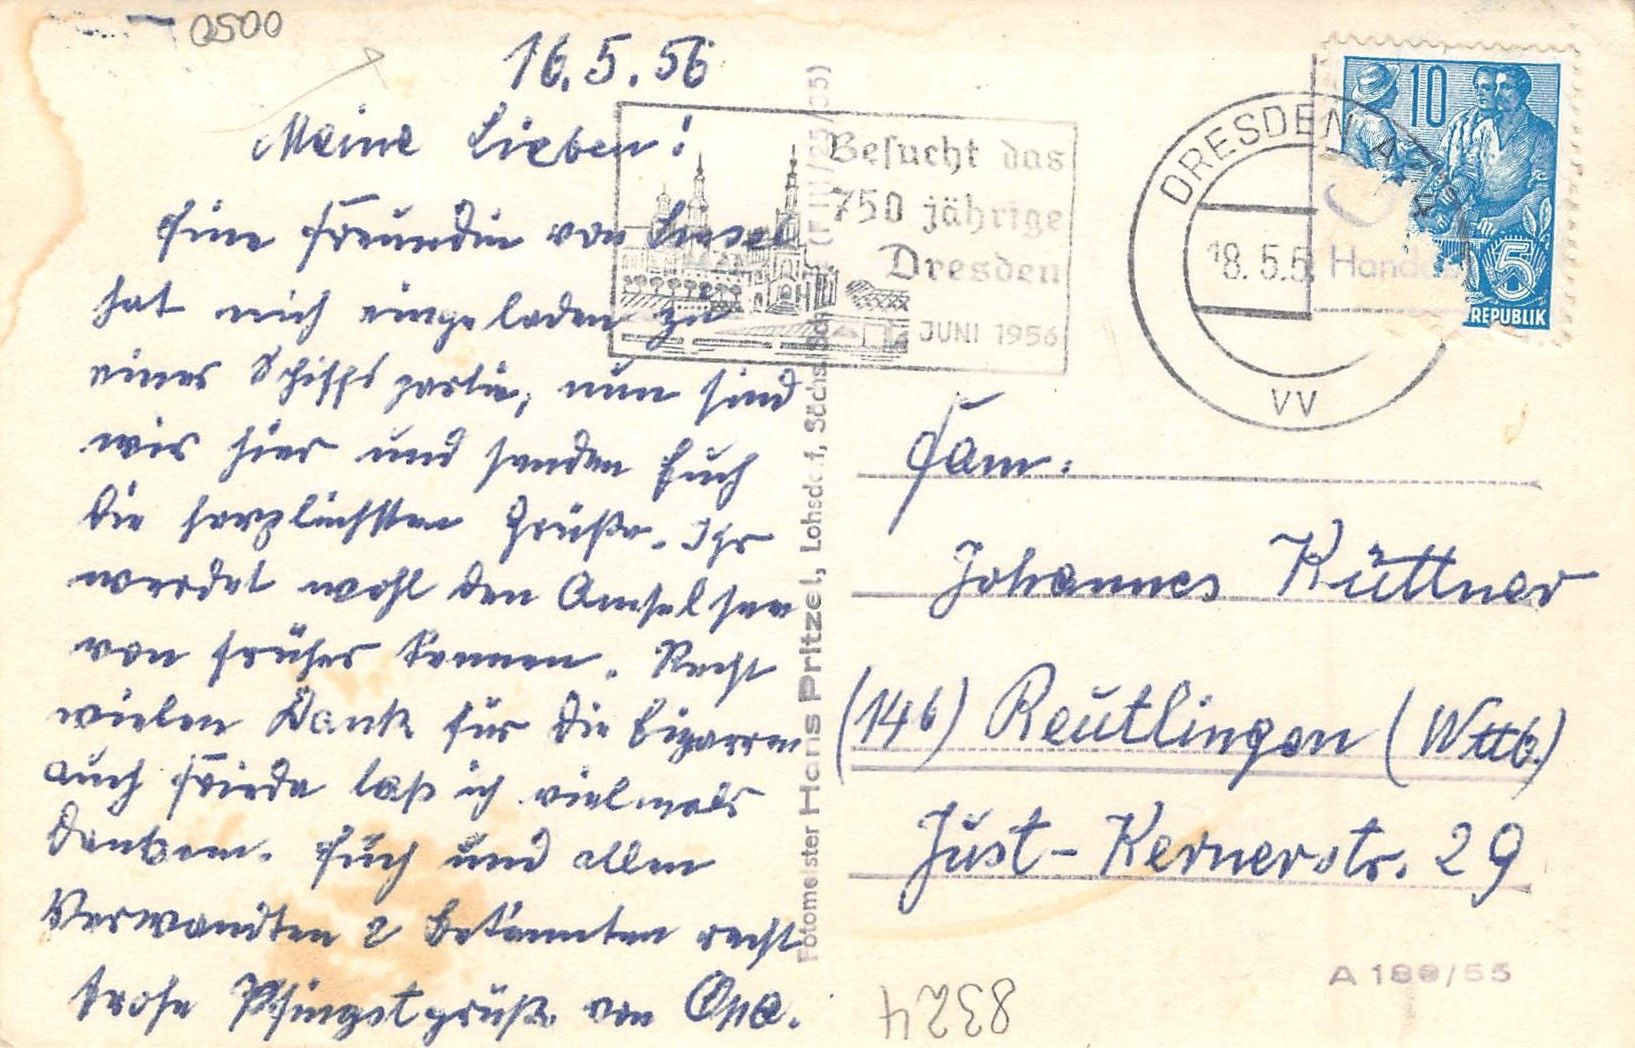 0500
16.5.56
Meine Lieben!
Eine Freundin von Liesel
hat mich eingeladen zu
einer Schiffspartie, nun sind
wir hier und senden Euch
die herzlichsten Grüße. Ihr
werdet wohl den Amselsee
von früher kennen. Recht
vielen Dank für die Zigarren
auch Frieda laß ich vielmals
danken. Euch und allen
Verwandten & Bekannten recht
frohe Pfingstgrüße von Opa.
Besucht das
750 jährige
Dresden
JUNI 1956
DRESDEN A
18.5.5
VV
10
5
REPUBLIK
Fam.
Johannes Küttner
(14b) Reutlingen (Wttb.)
Just-Kernerstr. 29
Fotomeister Hans Pritzel, Lohsdorf, Sächs. Schw.
A 189/55
8324